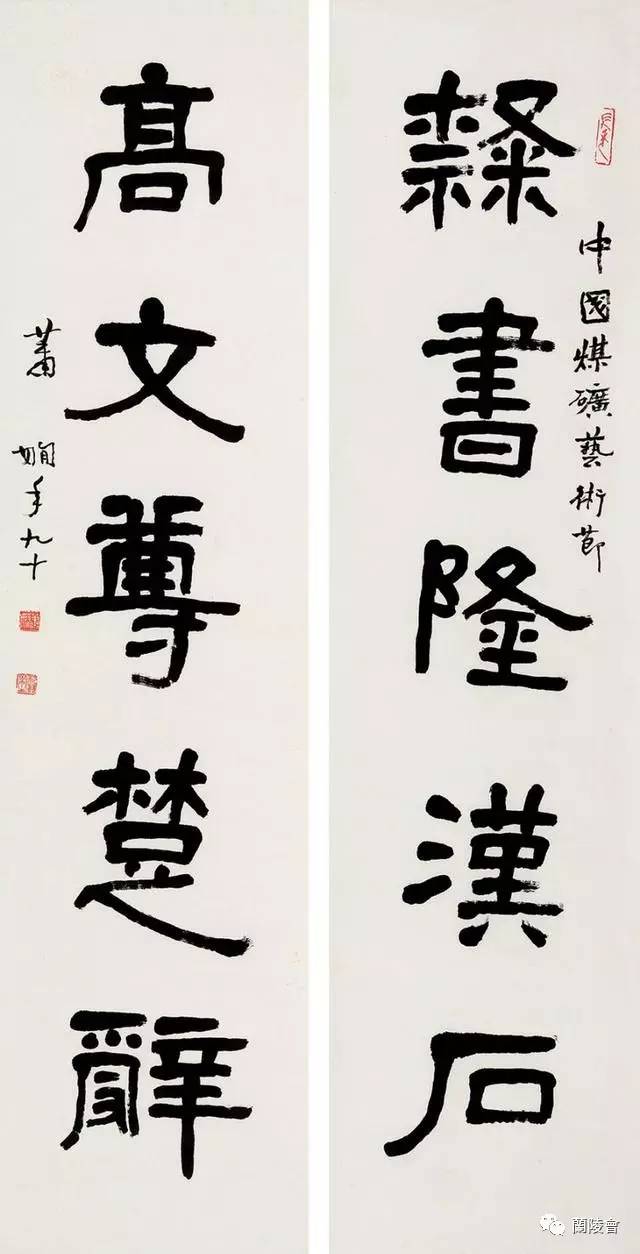 中國煤礦藝術節
隸書隆漢石
高文尊楚辭
蕭嫻年九十
蘭陵會